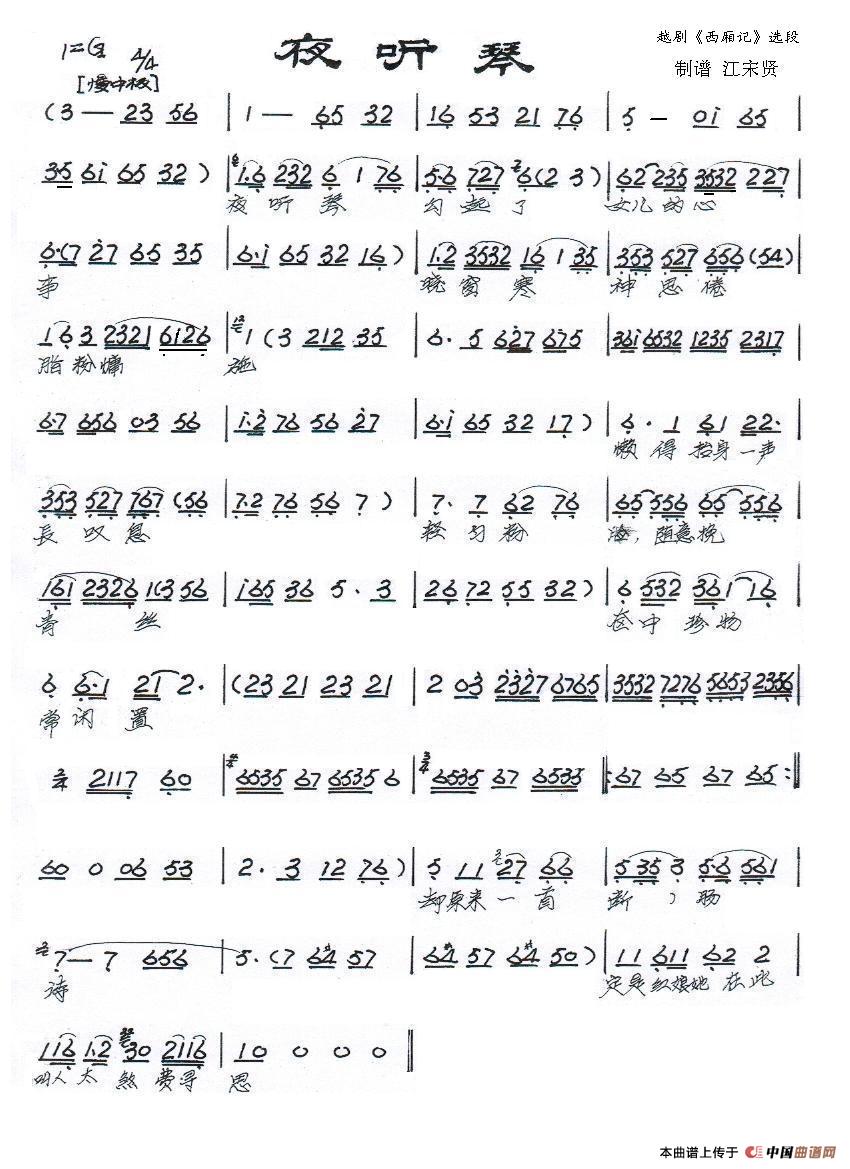 夜听琴
越剧《西厢记》选段
制谱 江宋贤
1=G 4/4
[慢中板]
(3 — 23 56 | 1 — 65 32 | 16 53 21 76 | 5 — 01 65 |
35 61 65 32 ) | 1.6 232 6 1 76 | 5.6 727 6(2 3) | 62 235 3532 227 |
夜 听 琴 勾 起 了 女儿 的 心
6.(7 27 65 35 | 6.1 65 32 16 ) | 1.2 3532 16 1 35 | 353 527 656 (54) |
事 晓 窗 寒 神 思 倦
1 6 3 2321 6126 | 1 (3 212 35 | 6. 5 627 675 | 361 6532 1235 2317 |
脂粉慵 施
6.7 656 03 56 | 1.2 76 56 27 | 6.1 65 32 17 ) | 6. 1 61 22. |
懒 得 抬身 一声
353 527 767 (56 | 7.2 76 56 7 ) | 7. 7 62 76 | 65 556 65 556 |
長 叹 息 轻 匀 粉 随意挽
161 2326 1(3 56 | 165 36 5. 3 | 26 72 55 32 ) | 6 532 361 16 |
青 丝 奁 中 珍 物
6 6.1 21 2. | (23 21 23 21 | 2 03 2327 6765 | 3532 7276 5653 2356 |
常 闲 置
2/4 2117 60 | 4/4 6535 67 6535 6 | 3/4 6535 67 6535 |: 67 65 67 65 :|
60 0 06 53 | 2. 3 12 76 ) | 5 11 27 66 | 5 35 3 5.6 561 |
却原来 一 首 断 肠
7 — 7 656 | 5. (7 6#4 57 | 6#4 57 6#4 50 ) | 11 611 62 2 |
诗 定是红娘她 在此
116 1.2 30 2116 | 10 0 0 0 ‖
叫人 太 煞 费寻 思
本曲谱上传于 中国曲谱网